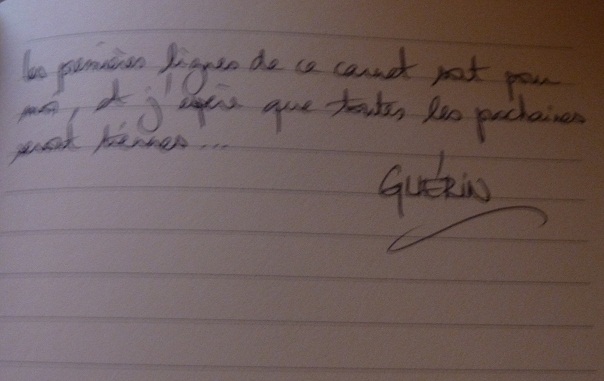 les premières lignes de ce carnet sont pour
moi, et j'espère que toutes les prochaines
seront tiennes...
GUÉRIN